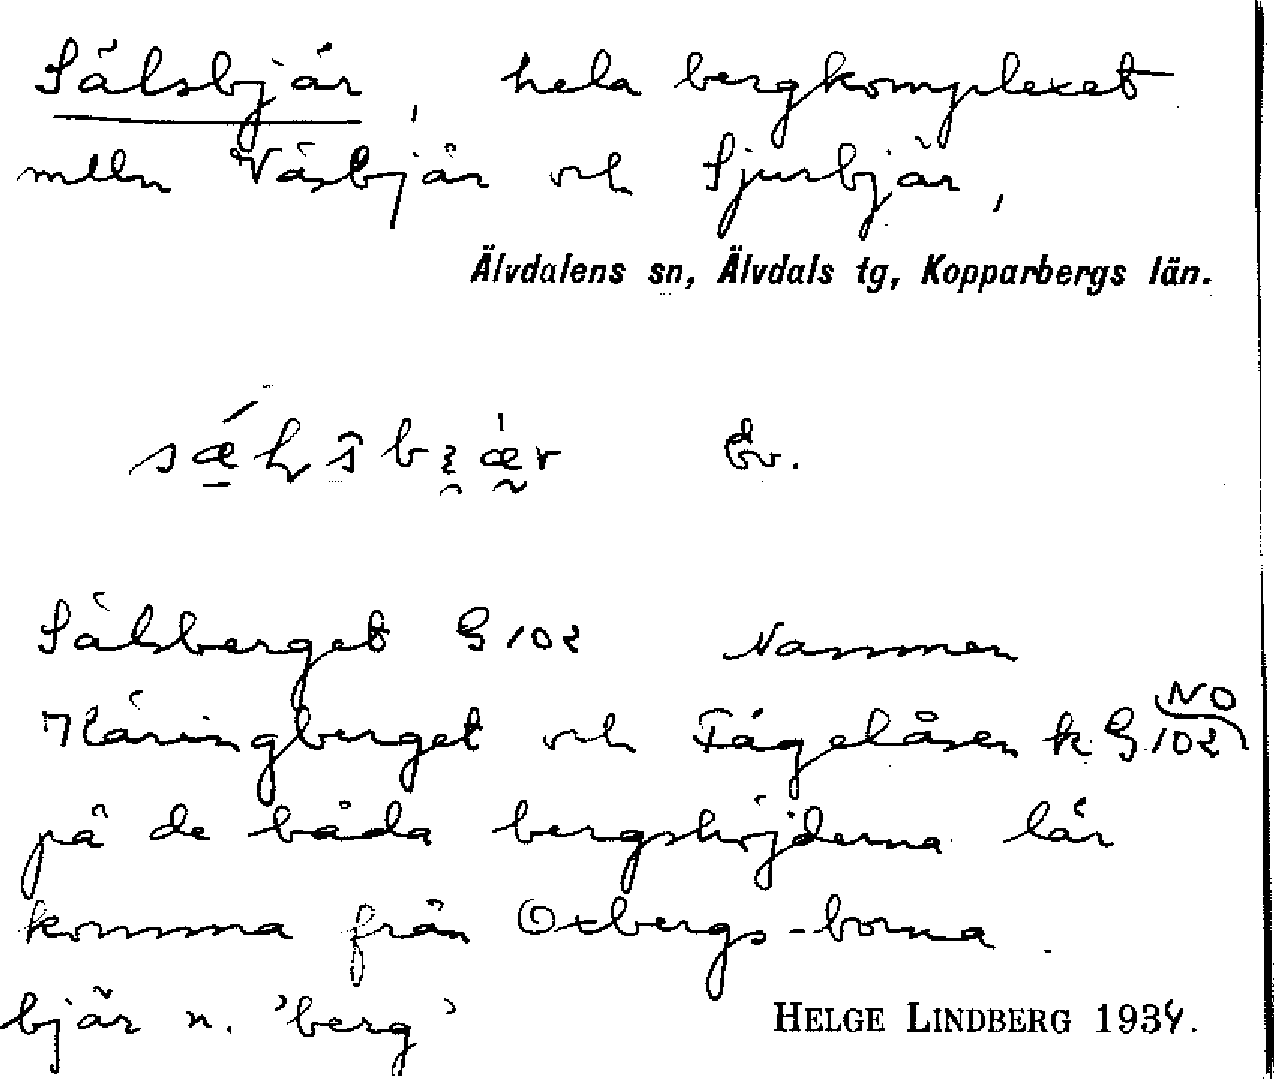 Sälsbjär, hela bergkomplexet
mlln Väsbjär och Sjursbjär,
Älvdalens sn, Älvdals tg, Kopparbergs län.
Ev.
Sälsberget G 102 Namnen
Käringberget och Fågelåsen k. G NO 102
på de båda bergshöjderna lär
komma från Oxbergs-borna.
bjär n. 'berg'
HELGE LINDBERG 1934.